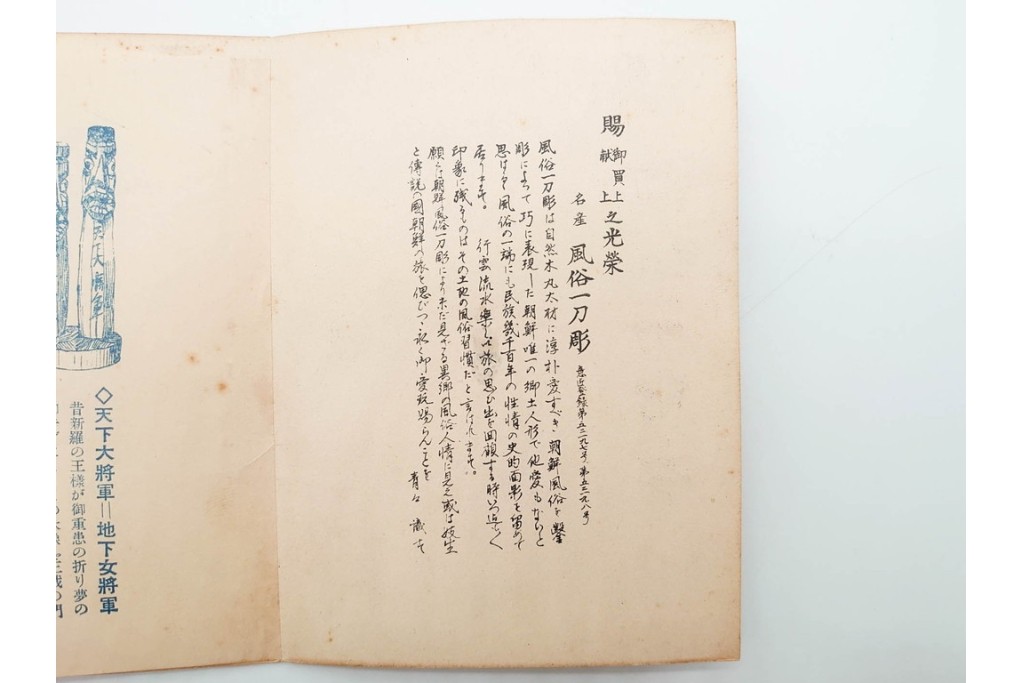 賜 御買上 献上 之光榮
名産 風俗一刀彫 意匠登録第五二九七号 第五二九八号
風俗一刀彫は自然木丸太材に淳朴愛すべき朝鮮風俗を鑿
彫によって巧に表現した朝鮮唯一の郷土人形で他愛もないと
思はるゝ風俗の一端にも民族幾千百年の性情の史的面影を留めて
居ります。 行雲流水樂しい旅の思ひ出を回顧する時いつ迄も
印象に残るものはその土地の風俗習慣だと言はれます。
願くは朝鮮風俗一刀彫により未だ見ざる異郷の風俗人情に見え或は妓生
と傳説の國朝鮮の旅を偲びつゝ永く御愛玩賜らんことを
識す
◇天下大將軍=地下女將軍
昔新羅の王様が御重患の折り夢の
天下大將軍